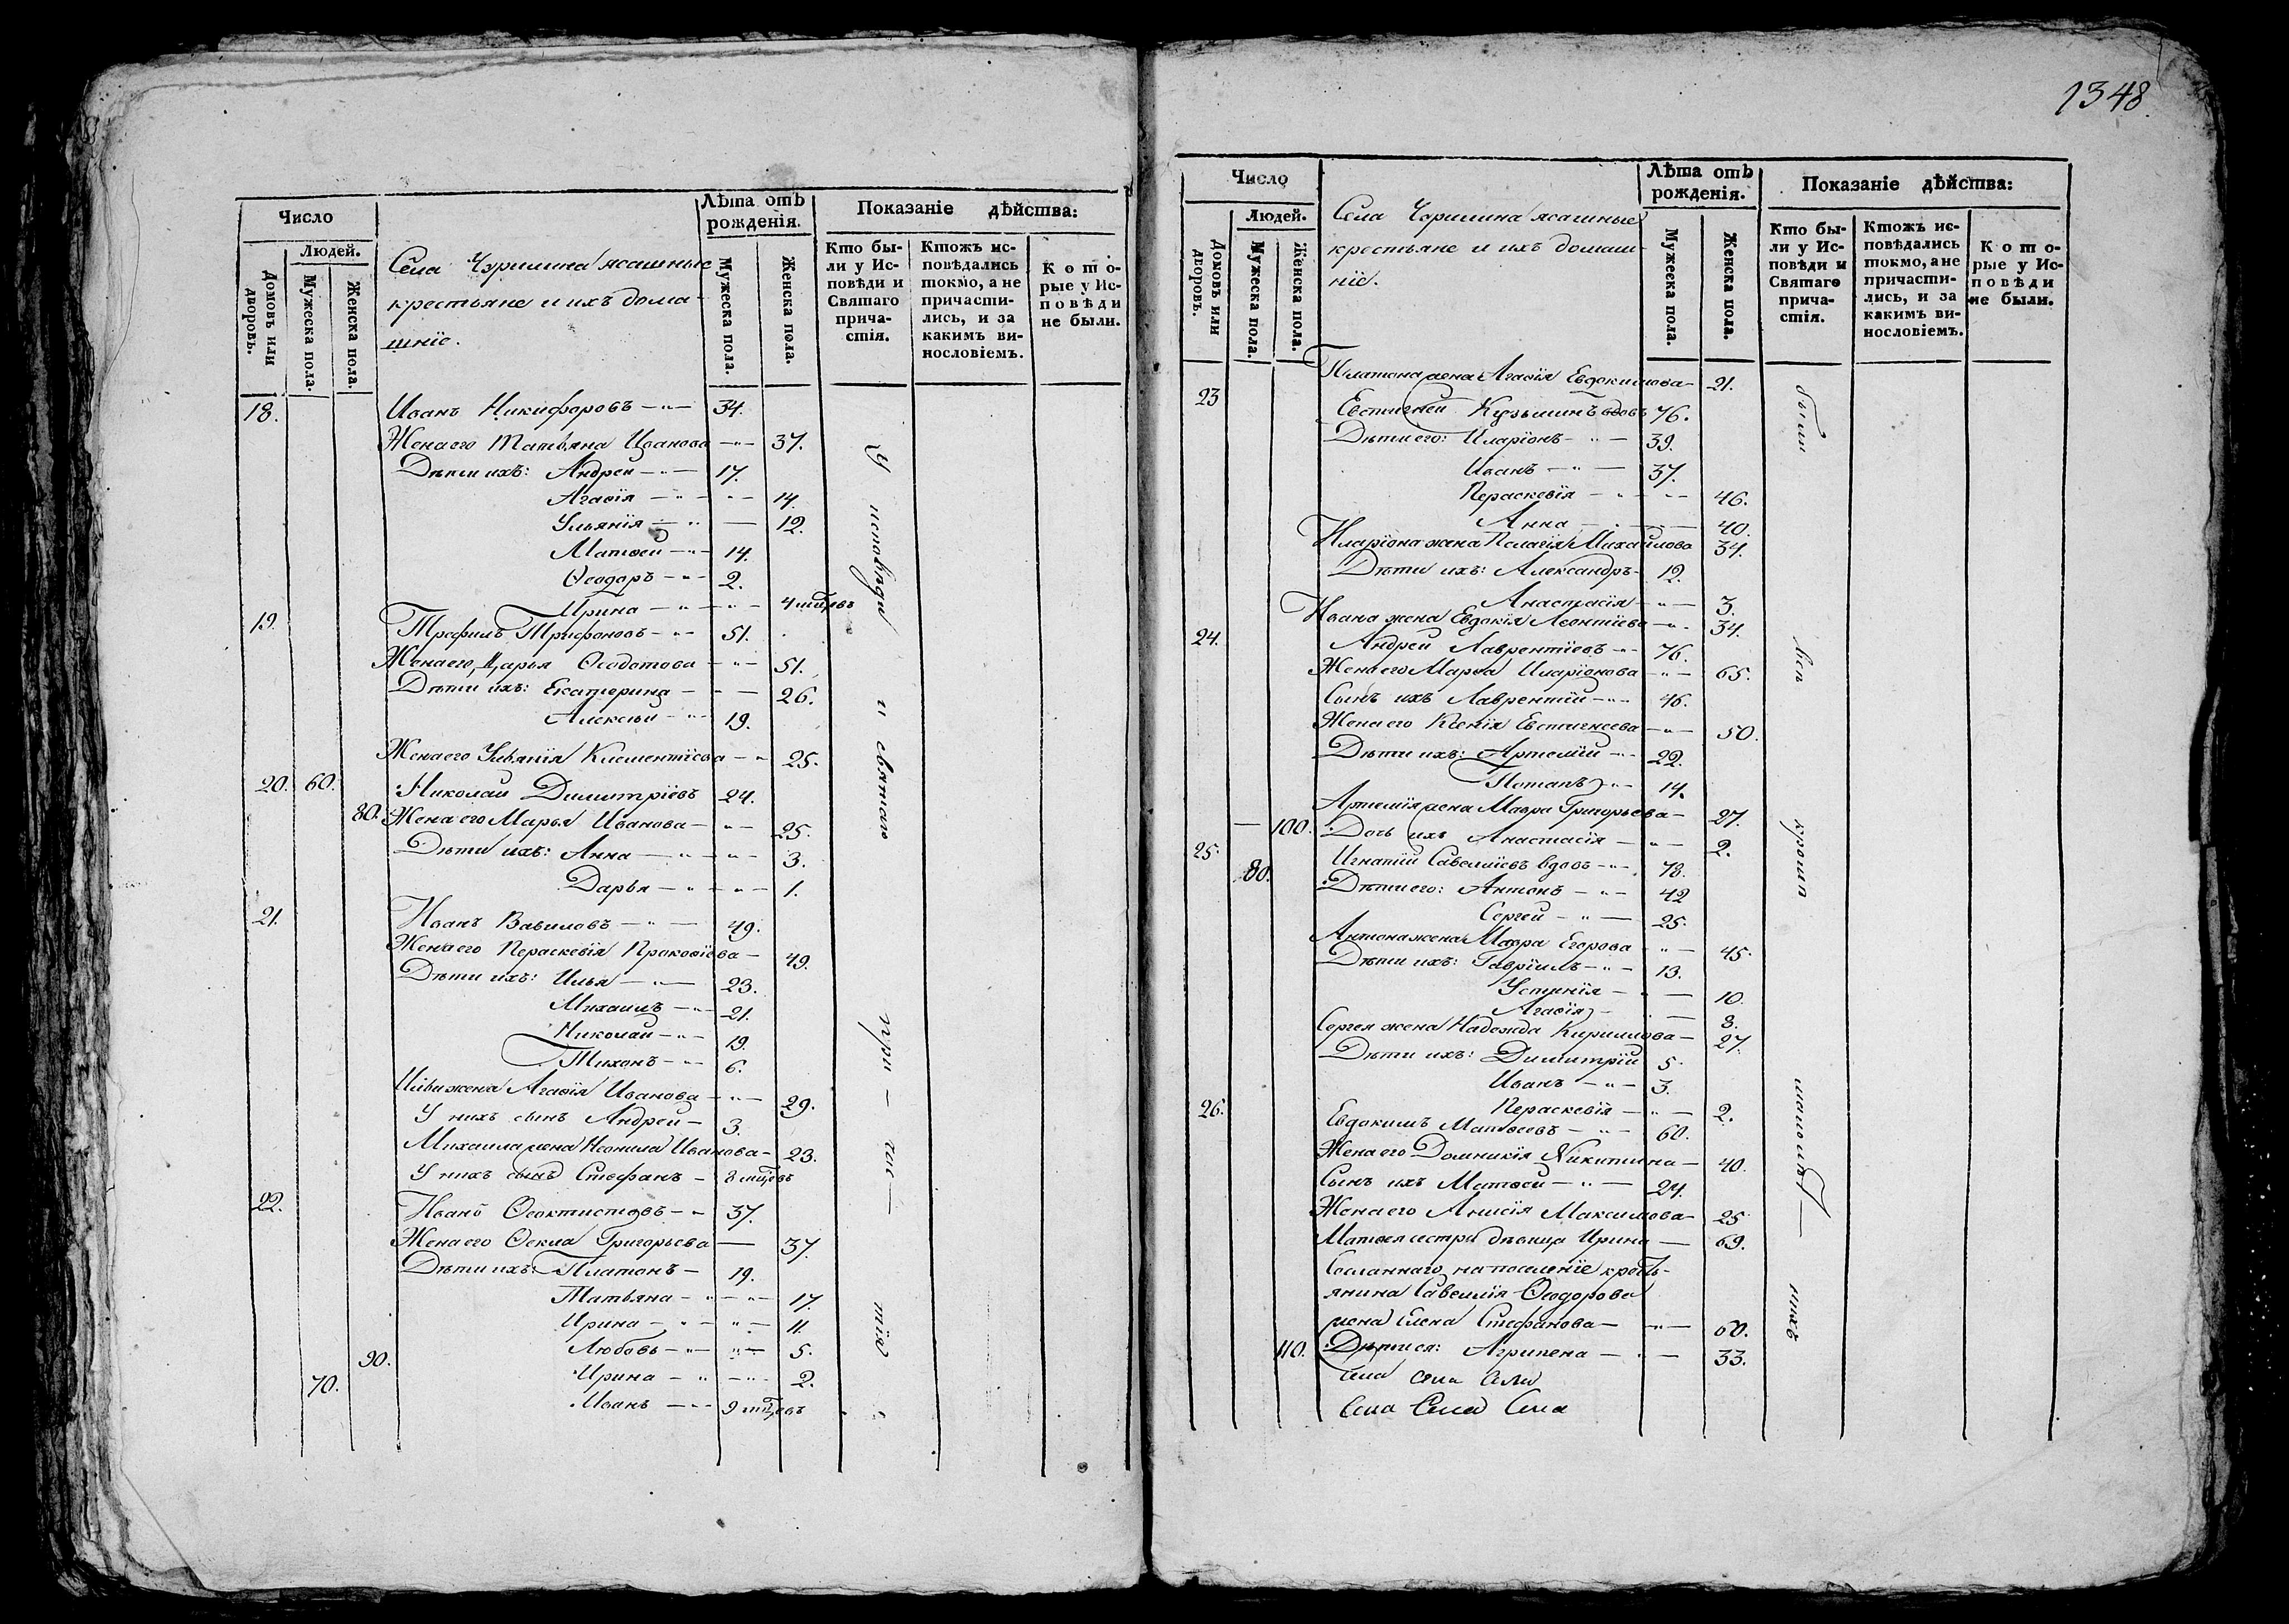 Число
Людей.
Домовъ или дворовъ.
Мужеска пола.
Женска пола.
Села Чэрилина ясашные
крестьяне и ихъ дома-
шніе.
Лѣта отъ рожденія.
Мужеска пола.
Женска пола.
Показаніе дѣйства:
Кто бы-
ли у Ис-
повѣди и
Святаго
прича-
стія.
Ктожъ ис-
повѣдались
токмо, а не
причасти-
лись, и за
какимъ ви-
нословіемъ.
Кото-
рые у Ис-
повѣди
не были.
18. Иванъ Никифоровъ 34.
Жена его Татьяна Иванова 37.
Дѣти ихъ: Андрей 17.
Агаѳія 14.
Ульянія 12.
Матѳей 14.
Ѳеодоръ 2.
Ирина 4 мцѣвъ
19. Трофимъ Трифоновъ 51.
Жена его, Дарья Ѳеодотова 51.
Дѣти ихъ: Екатерина 26.
Алексѣй 19.
Жена его Ульянія Климентіева 25.
20. 60. Николай Димитріевъ 24.
80. Жена его Марья Иванова 25.
Дѣти ихъ: Анна 3.
Дарья 1.
21. Иванъ Вавиловъ 49.
Жена его Пераскевія Прокофіева 49.
Дѣти ихъ: Илья 23.
Михаилъ 21.
Николай 19.
Тихонъ 6.
Ильи жена Агаѳія Иванова 29.
У нихъ сынъ Андрей 3.
Михаила жена Неонила Иванова 23.
У нихъ сынъ Стефанъ 8 мцѣвъ
22. Иванъ Ѳеоктистовъ 37.
Жена его Ѳекла Григорьева 37.
Дѣти ихъ: Платонъ 19.
Татьяна 17.
Ирина 11.
90. Любовь 5.
70. Ирина 2.
Иванъ 9 мцѣвъ
У исповѣди и святаго при-ча-стія
1348.
Число
Людей.
Домовъ или дворовъ.
Мужеска пола.
Женска пола.
Села Чэрилина ясашные
крестьяне и ихъ домаш-
ніе.
Лѣта отъ рожденія.
Мужеска пола.
Женска пола.
Показаніе дѣйства:
Кто бы-
ли у Ис-
повѣди и
Святаго
прича-
стія.
Ктожъ ис-
повѣдались
токмо, а не
причасти-
лись, и за
какимъ ви-
нословіемъ.
Кото-
рые у Ис-
повѣди
не были.
Платона жена Агаѳія Евдокимова 21.
23 Евстигней Кузьминъ вдовъ 76.
Дѣти его: Иларіонъ 39.
Иванъ 37.
Пераскевія 46.
Анна 40.
Иларіона жена Пелагія Михайлова 34.
Дѣти ихъ: Александръ 12.
Анастасія 3.
Ивана жена Евдокія Леонтіева 34.
24. Андрей Лаврентіевъ 76.
Жена его Марѳа Иларіонова 65.
Сынъ ихъ Лаврентій 46.
Жена его Ксенія Евстигнеева 50.
Дѣти ихъ: Артемій 22.
Потапъ 14.
Артемія жена Мавра Григорьева 27.
100. Дочь ихъ Анастасія 2.
25. Игнатій Савеліевъ вдовъ 78.
80. Дѣти его: Антонъ 42
Сергей 25.
Антона жена Мавра Егорова 45.
Дѣти ихъ: Гавріилъ 13.
Устинія 10.
Агаѳія 8.
Сергея жена Надежда Кирилова 27.
Дѣти ихъ: Димитрій 5.
Иванъ 3.
Пераскевія 2.
26. Евдокимъ Матѳеевъ 60.
Жена его Домникія Никитина 40.
Сынъ ихъ Матѳей 24.
Жена его Анисія Максимова 25
Матѳея сестра дѣвица Ирина 69.
Сосланнаго на поселеніе кресть-
янина Савелія Ѳеодорова
жена Елена Стефанова 60.
110. Дѣти ея: Агрипена 33.
Села Села Села
Села Села Села
были всѣ кромѣ малолѣт- нихъ